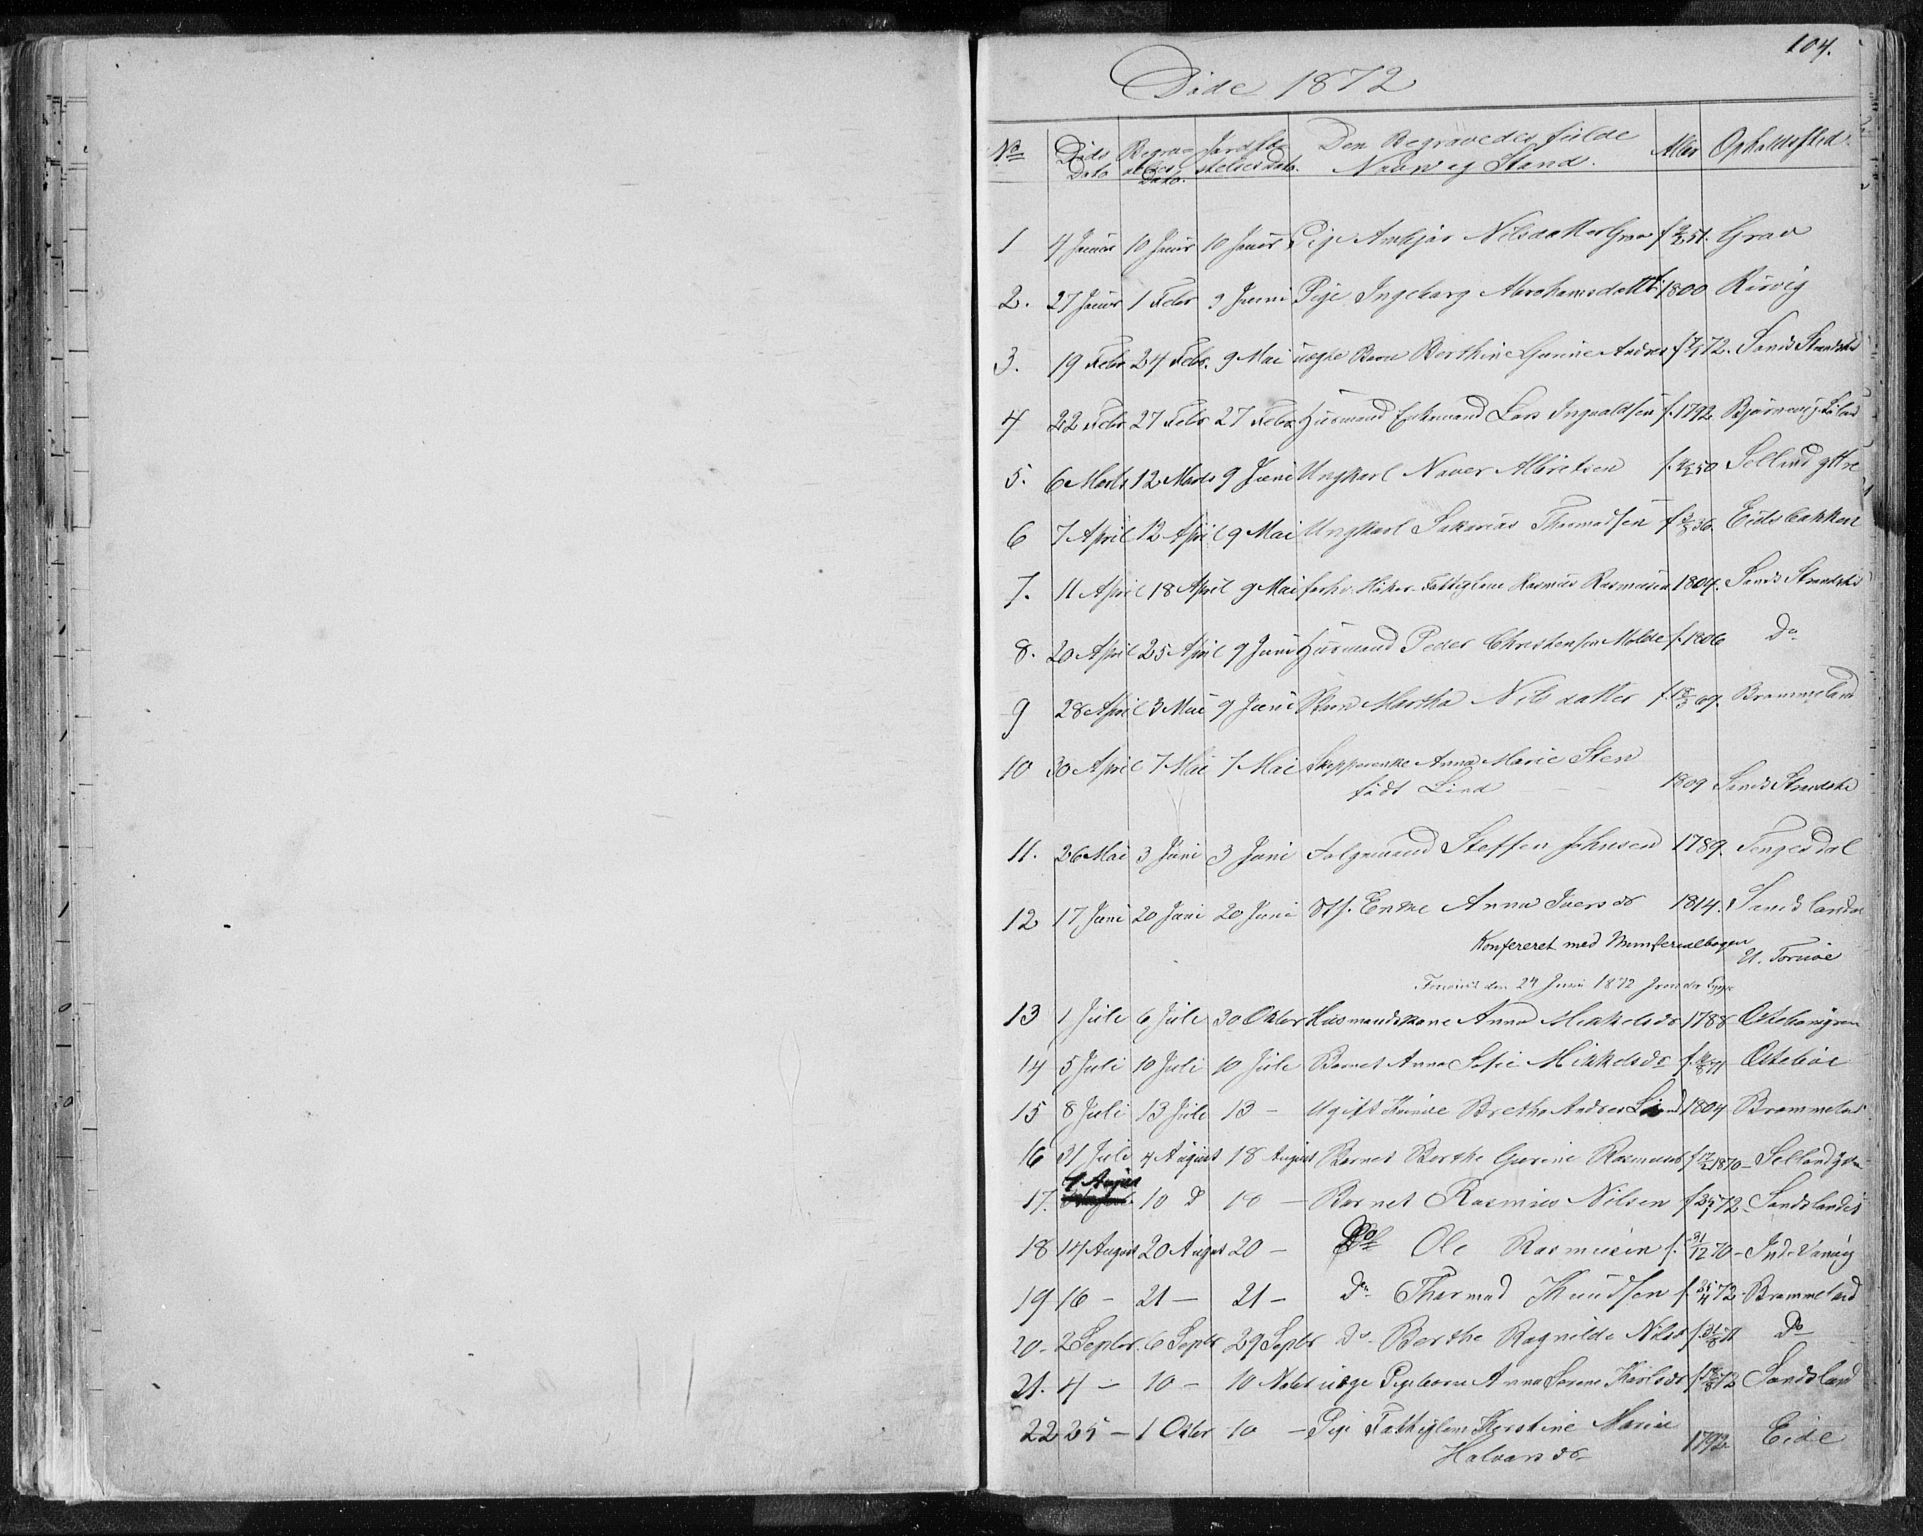 104.
Døde 1872
No Døds Dato Begravelses Dato. Jordfæstelses Dato. Den Begravedes fulde Navn og Stand. Alder Opholdssted.
1 4 Januar 10 Januar 10 Januar Pige Nilsdatter Grav f 51. Grav
2. 27 Januar 1 Febr 9 Juni Pige Ingeborg Abrahamsdatter 1800 Rørvig
3. 19 Febr 24 Febr. 9 Mai uægte Barn Berthine Gurine Andreas f 72. Sands Strandsted
4 22 Febr 27 Febr 27 Febr Husmand Enkemand Lars Ingvaldsen f. 1792
5. 6 Marts 12 Marts 9 Juni Ungkarl Albretsen f. 50 Selland yttre
6 7 April 12 April 9 Mai Ungkarl Sakarias Thormodsen f 36. Eidsbakken
7. 11 April 18 April 9 Mai Fattiglem Rasmus Rasmusen 1804. Sands Strandsted
8. 20 April 25 April 9 Juni Husmand Peder Christensen Molde f. 1806 Do
9 28 April 3 Mai 9 Juni Barn Martha Nilsdatter f. 69. Brommeland
10 30 April 7 Mai 7 Mai Skipperenke Anna Marie Sten
født Lind 1809 Sands Strandsted
11. 26 Mai 3 Juni 3 Juni Folgemand Steffen Johnsen 1789. Tengesdal
12 17 Juni 20 Juni 20 Juni Enke Anna Ivers dr 1814. Sandsland
Konfereret med Ministerialbogen
U. Tornøe
den 24 Juni 1872
13 1 Juli 6 Juli 30 Oktbr Husmandskone Anna Mikkelsdr 1788
14 5 Juli 10 Juli 10 Juli Barnet Anna Sofie Mikkelsdr f. 71 Østebøe
15 8 Juli 13 Juli 13 – Ugift Kvinde Brethe Andreas 1804 Brommeland
16 31 Juli 4 August 18 August Barnet Berthe Gurine Rasmusd f 1870 – Selland
17. 4 August 10 d 10 – Barnet Rasmus Nilsen f 72 – Sandsland
18 14 August 20 August 20 – Do Ole Rasmusen f. 31/12 70 – Indre Vanvig
19 16 – 21 – 21 – Do Thormod Knudsen f. 25/4 72 – Brommeland
20. 2 Septbr. 6 Septbr 29 Septbr do. Berthe Ragnilde Nilsd f. 71 Do
21. 4 – 10 – 10 Novbr uægte Pigebarn Anna Serene Karlsdr f 72 Sandsland
22 25 – 1 Oktbr 10 – Pige Fattiglem Kirstine Marie
Halvorsdr 1792 Eide